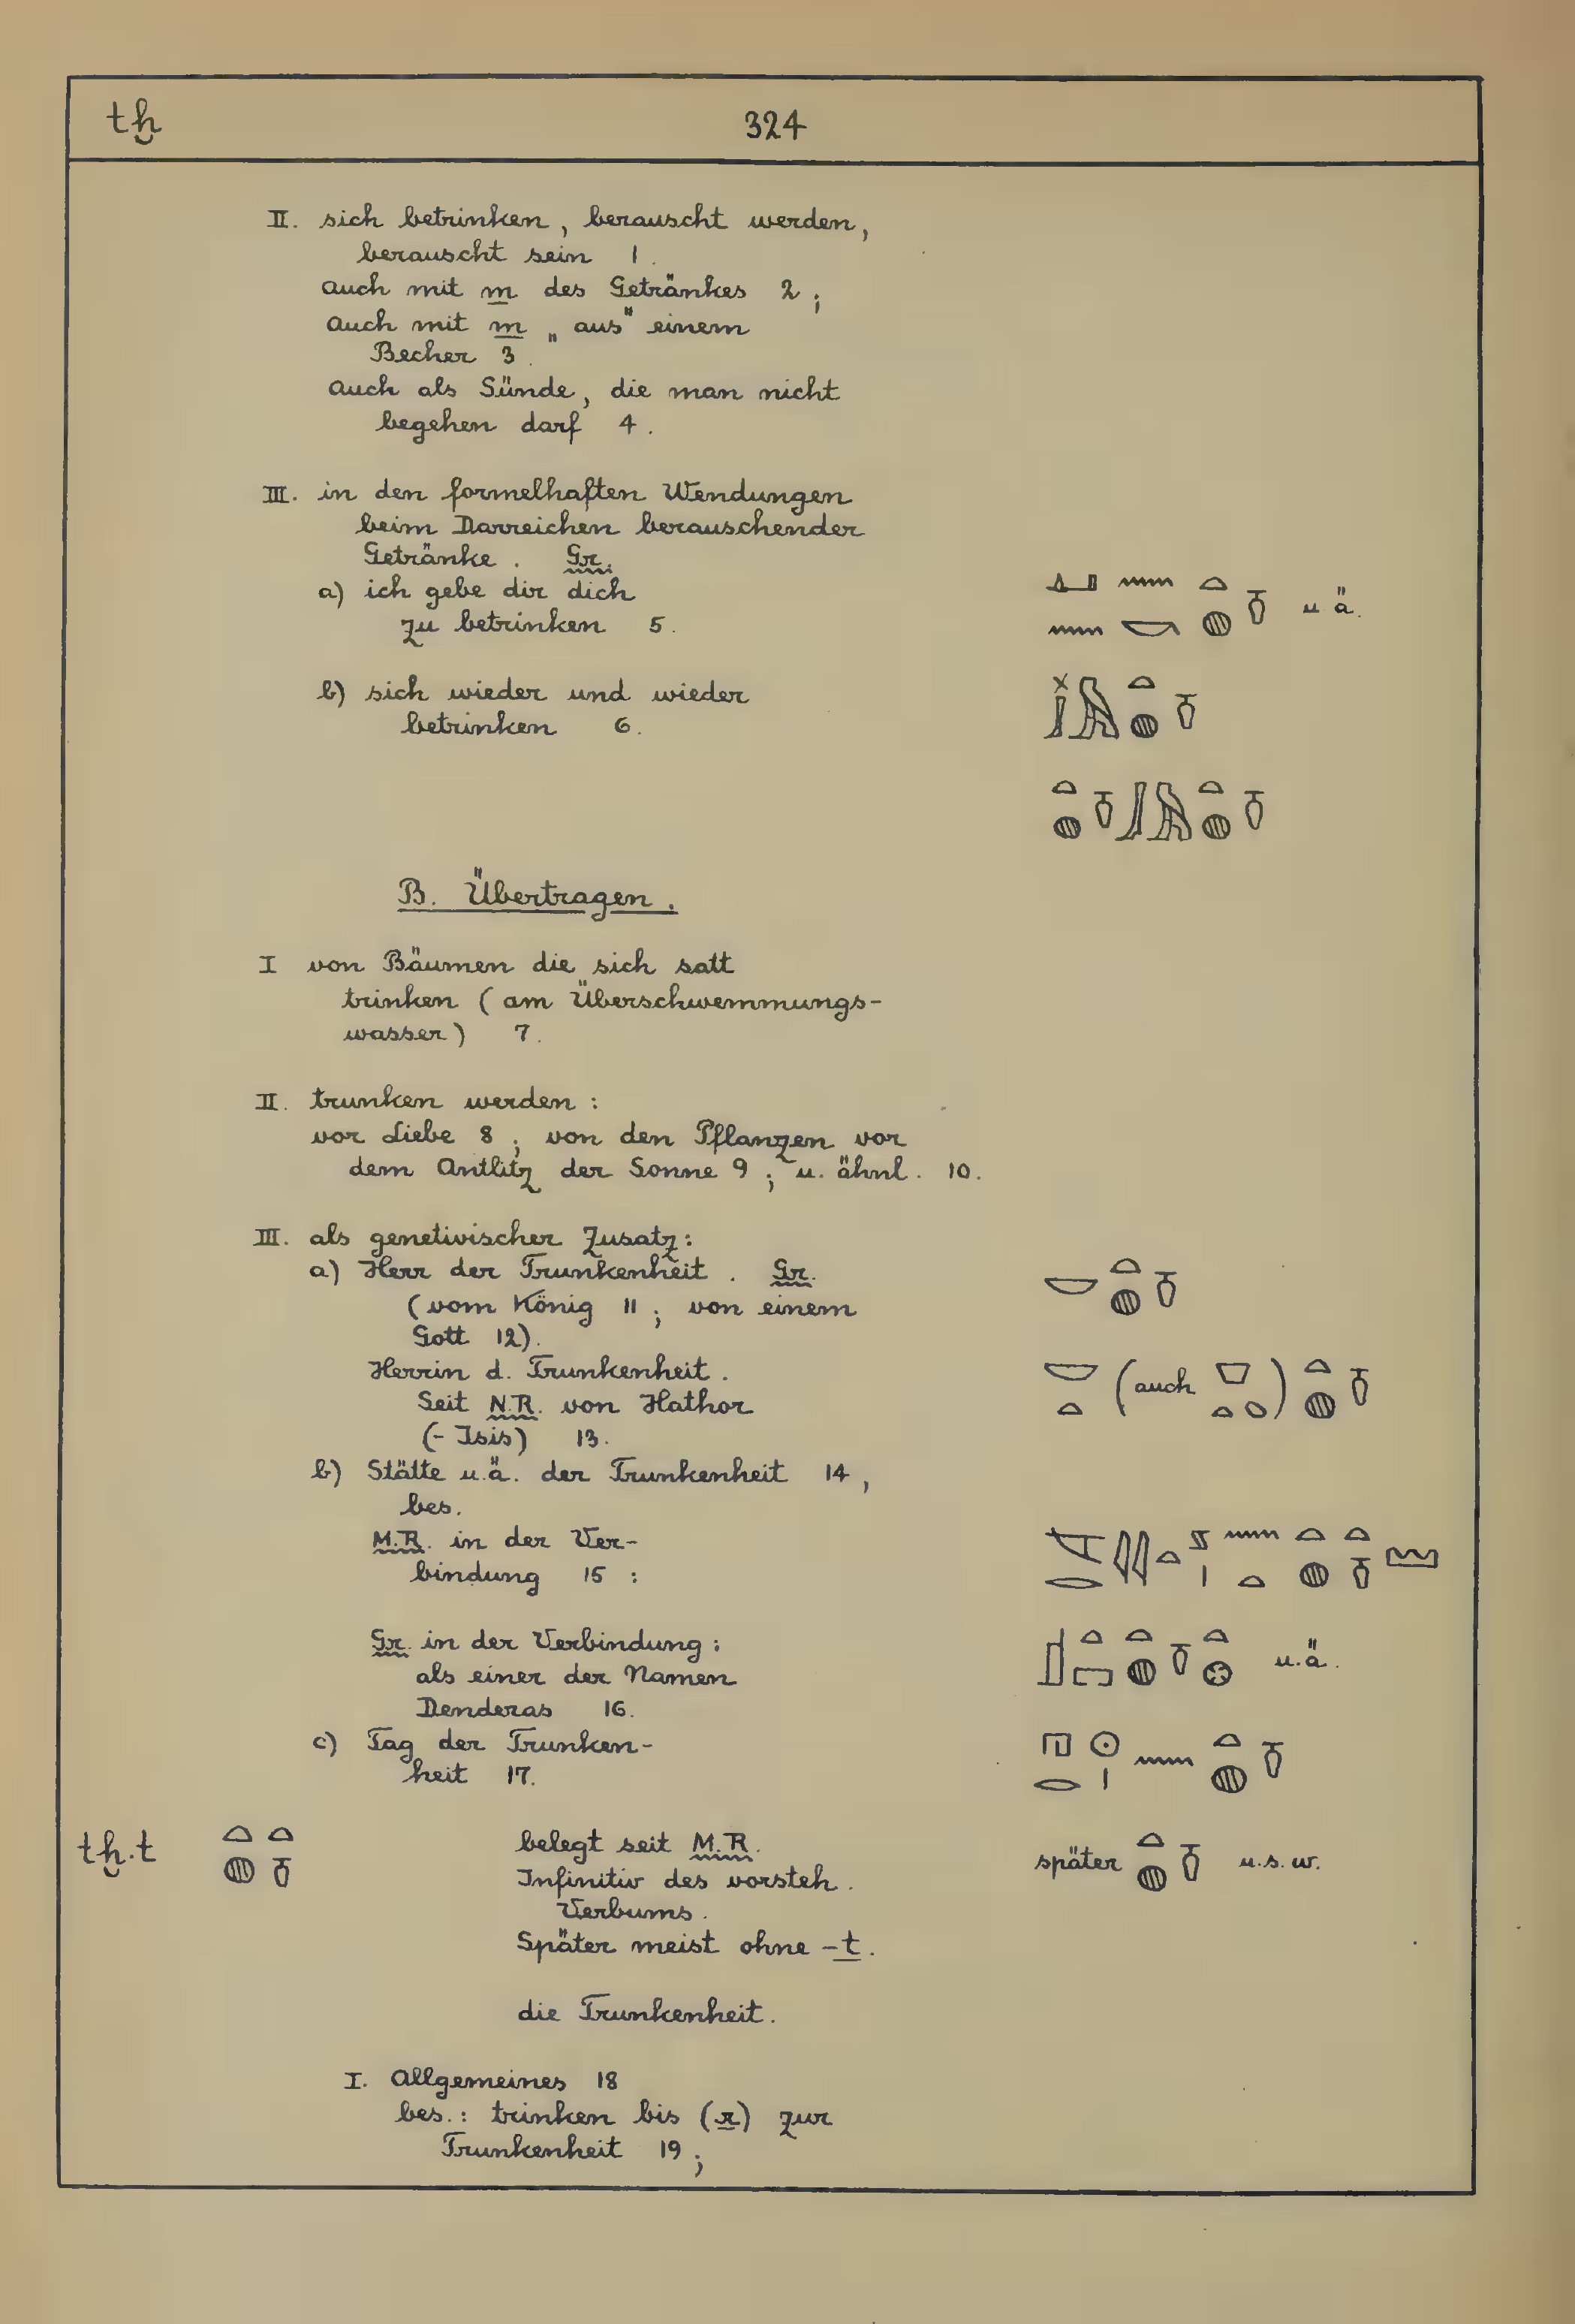 tḫ 324
II. sich betrinken, berauscht werden,
berauscht sein 1.
auch mit m des Getränkes 2;
auch mit m „aus" einem
Becher 3.
auch als Sünde, die man nicht
begehen darf 4.
III. in den formelhaften Wendungen
beim Darreichen berauschender
Getränke. Gr.
a) ich gebe dir dich
zu betrinken 5. u ä.
b) sich wieder und wieder
betrinken 6.
B. Übertragen.
I von Bäumen die sich satt
trinken (am Überschwemmungs-
wasser) 7.
II. trunken werden:
vor Liebe 8; von den Pflanzen vor
dem Antlitz der Sonne 9; u. ähnl. 10.
III. als genetivischer Zusatz:
a) Herr der Trunkenheit. Gr.
(vom König 11; von einem
Gott 12).
Herrin d. Trunkenheit. (auch )
Seit N.R. von Hathor
(- Isis) 13.
b) Stätte u.ä. der Trunkenheit 14,
bes.
M.R. in der Ver-
bindung 15:
Gr. in der Verbindung: u.ä.
als einer der Namen
Denderas 16.
c) Tag der Trunken-
heit 17.
tḫ.t belegt seit M.R. später u.s.w.
Infinitiv des vorsteh.
Verbums.
Später meist ohne -t.
die Trunkenheit.
I. Allgemeines 18
bes.: trinken bis (r) zur
Trunkenheit 19;